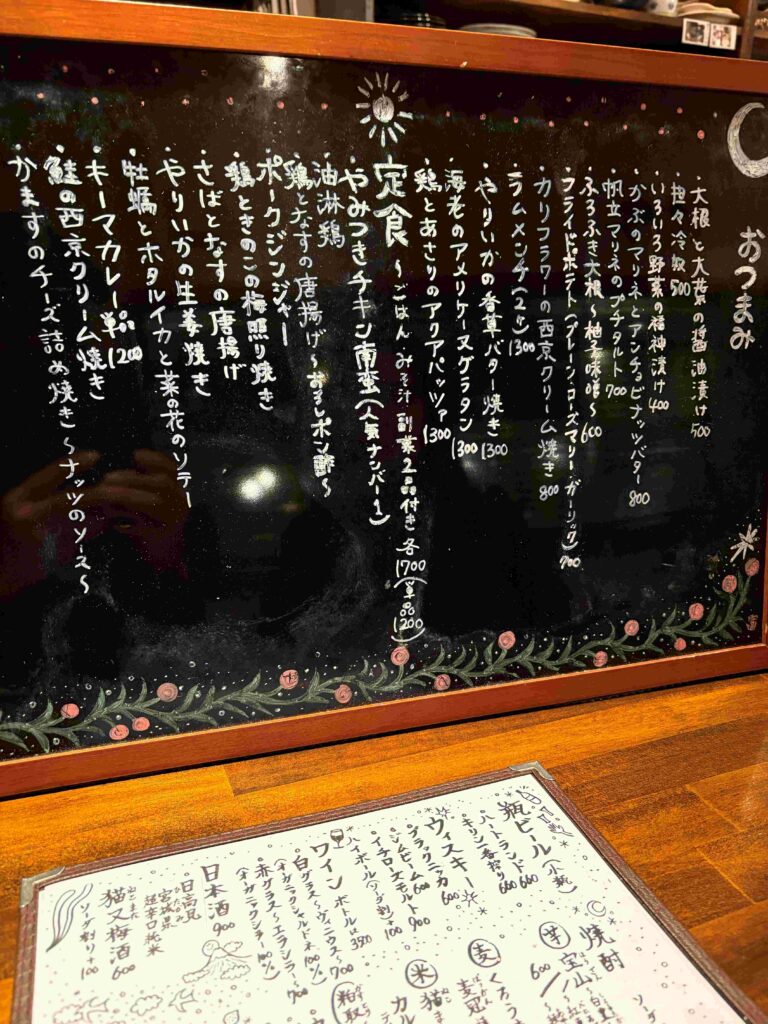 おつまみ
・大根と大葉の醤油漬け 500
・担々冷奴 500
・いろいろ野菜の福神漬け 400
・かぶのマリネとアンチョビナッツバター 800
・帆立マリネのプチタルト 700
・ふろふき大根〜柚子味噌〜 600
・フライドポテト(プレーン・ローズマリー・ガーリック) 700
・カリフラワーの西京クリーム焼き 800
・ラムメンチ(2ヶ) 1300
・やりいかの香草バター焼き 1300
・海老のアメリケーヌグラタン 1300
・鶏とあさりのアクアパッツァ 1300
定食 〜ごはん みそ汁 副菜2品付き 各1700(単品1200)
・やみつきチキン南蛮(人気ナンバー1)
・油淋鶏
・鶏となすの唐揚げ〜おろしポン酢〜
・ポークジンジャー
・鶏ときのこの梅照り焼き
・さばとなすの唐揚げ
・やりいかの生姜焼き
・牡蠣とホタルイカと菜の花のソテー
・キーマカレー 単品1200
・鮭の西京クリーム焼き
・かますのチーズ詰め焼き〜ナッツのソース〜
瓶ビール(小瓶)
ハートランド 660
キリン一番搾り 660
ウィスキー
ブラックニカ 600
ジムビーム 600
イチローズモルト 900
ハイボール(ソーダ割)+100
ワイン ボトルは3500
白グラス〜ヴィニウス〜700
(オーガニックシャルドネ100%)
赤グラス〜エラシラー〜700
(オーガニックシラー100%)
日本酒 900
日高見
ひたかみ
宮城県
超辛口純米
猫又梅酒 600
ねこまた
ソーダ割り+100
焼酎
芋 宝山
600
麦 くろう
麦冠
米 猫ま
カル
粕取